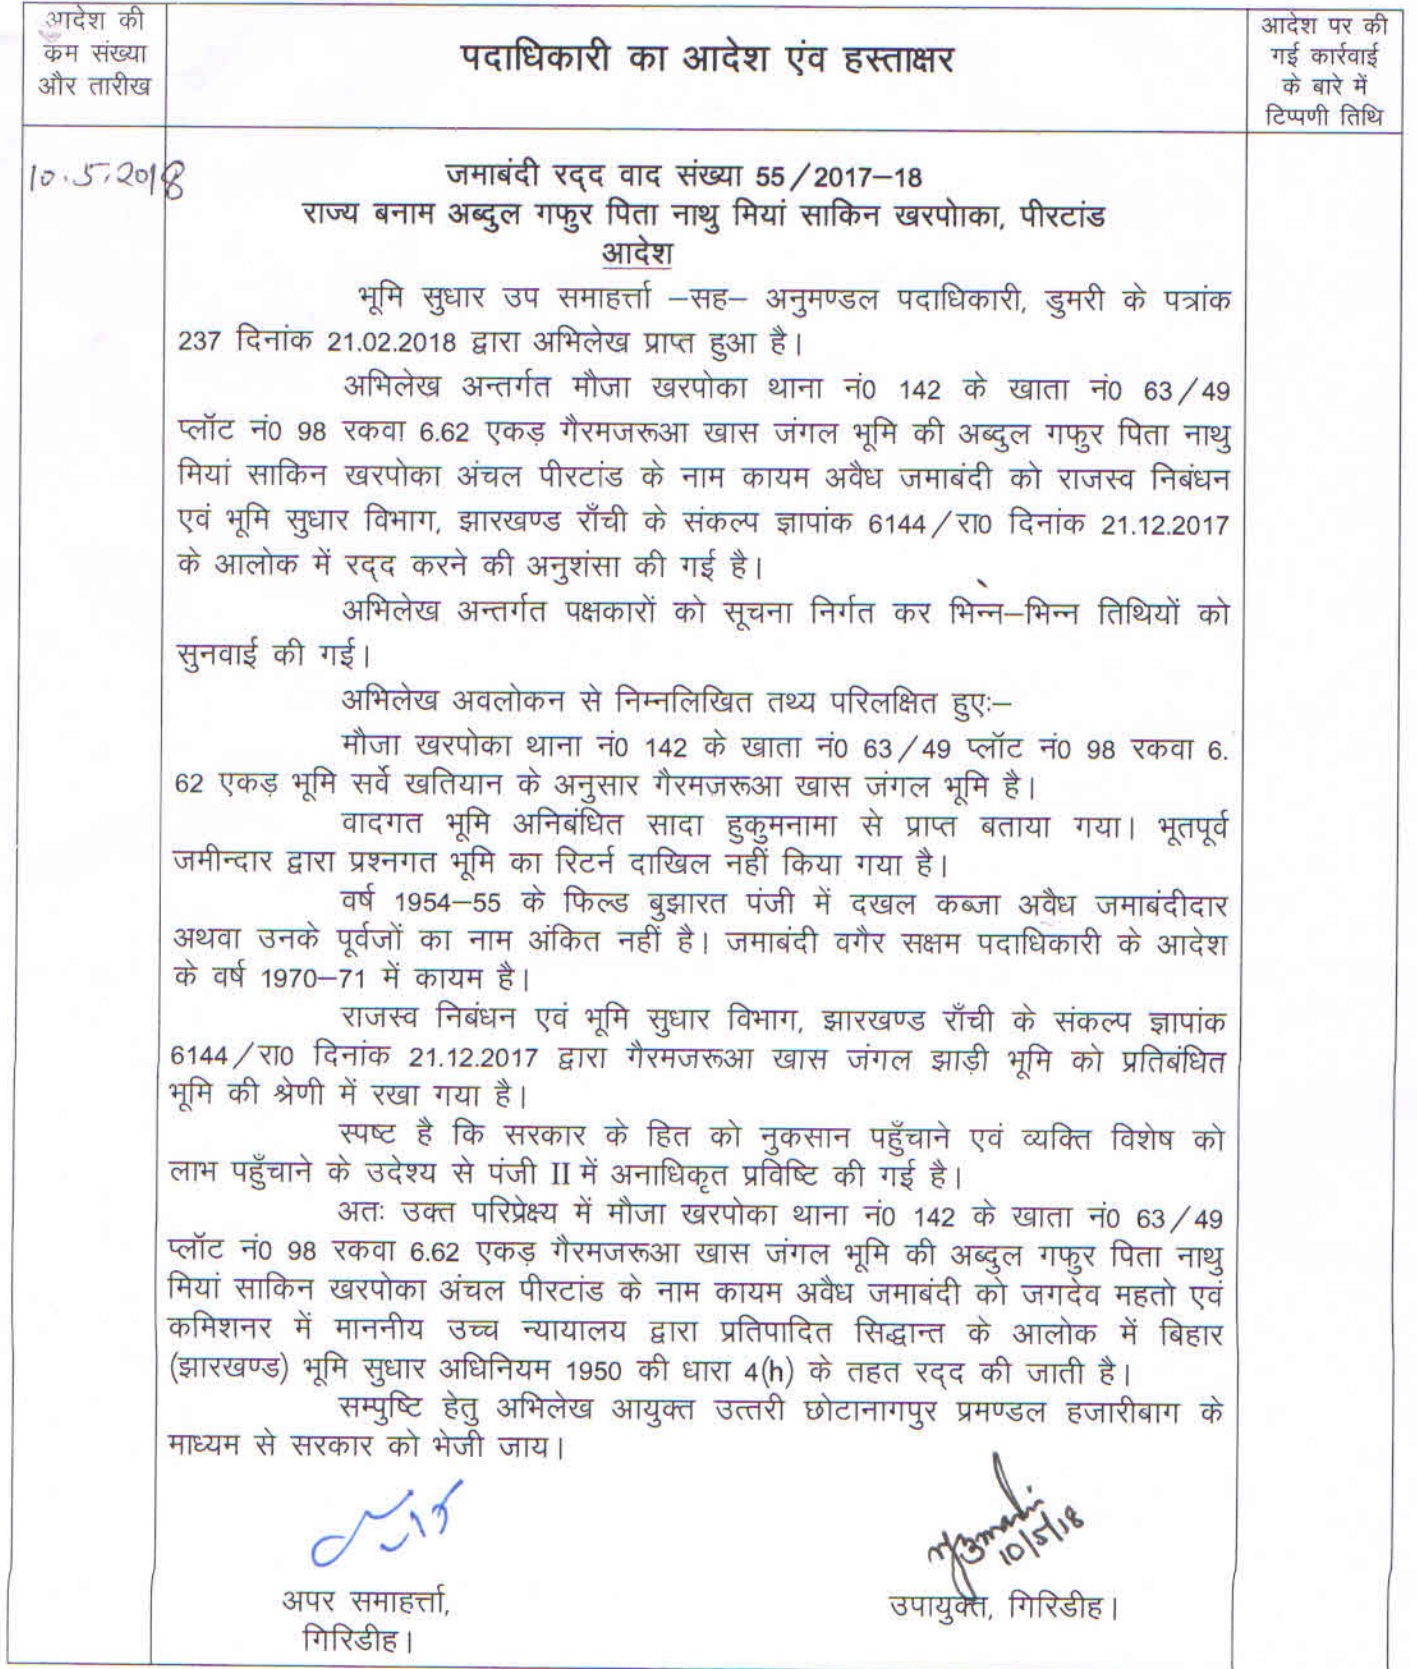 आदेश की
कम संख्या
और तारीख
पदाधिकारी का आदेश एंव हस्ताक्षर
आदेश पर की
गई कार्रवाई
के बारे में
टिप्पणी तिथि
10.5.2018
जमाबंदी रद्द वाद संख्या 55/2017–18
राज्य बनाम अब्दुल गफुर पिता नाथु मियां साकिन खरपोाका, पीरटांड
आदेश
भूमि सुधार उप समाहर्त्ता –सह– अनुमण्डल पदाधिकारी, डुमरी के पत्रांक
237 दिनांक 21.02.2018 द्वारा अभिलेख प्राप्त हुआ है।
अभिलेख अन्तर्गत मौजा खरपोका थाना नं0 142 के खाता नं0 63/49
प्लॉट नं0 98 रकवा 6.62 एकड़ गैरमजरूआ खास जंगल भूमि की अब्दुल गफुर पिता नाथु
मियां साकिन खरपोका अंचल पीरटांड के नाम कायम अवैध जमाबंदी को राजस्व निबंधन
एवं भूमि सुधार विभाग, झारखण्ड राँची के संकल्प ज्ञापांक 6144/रा0 दिनांक 21.12.2017
के आलोक में रद्द करने की अनुशंसा की गई है।
अभिलेख अन्तर्गत पक्षकारों को सूचना निर्गत कर भिन्न–भिन्न तिथियों को
सुनवाई की गई।
अभिलेख अवलोकन से निम्नलिखित तथ्य परिलक्षित हुएः–
मौजा खरपोका थाना नं0 142 के खाता नं0 63/49 प्लॉट नं0 98 रकवा 6.
62 एकड़ भूमि सर्वे खतियान के अनुसार गैरमजरूआ खास जंगल भूमि है।
वादगत भूमि अनिबंधित सादा हुकुमनामा से प्राप्त बताया गया। भूतपूर्व
जमीन्दार द्वारा प्रश्नगत भूमि का रिटर्न दाखिल नहीं किया गया है।
वर्ष 1954–55 के फिल्ड बुझारत पंजी में दखल कब्जा अवैध जमाबंदीदार
अथवा उनके पूर्वजों का नाम अंकित नहीं है। जमाबंदी वगैर सक्षम पदाधिकारी के आदेश
के वर्ष 1970–71 में कायम है।
राजस्व निबंधन एवं भूमि सुधार विभाग, झारखण्ड राँची के संकल्प ज्ञापांक
6144/रा0 दिनांक 21.12.2017 द्वारा गैरमजरूआ खास जंगल झाड़ी भूमि को प्रतिबंधित
भूमि की श्रेणी में रखा गया है।
स्पष्ट है कि सरकार के हित को नुकसान पहुँचाने एवं व्यक्ति विशेष को
लाभ पहुँचाने के उदेश्य से पंजी II में अनाधिकृत प्रविष्टि की गई है।
अतः उक्त परिप्रेक्ष्य में मौजा खरपोका थाना नं0 142 के खाता नं0 63/49
प्लॉट नं0 98 रकवा 6.62 एकड़ गैरमजरूआ खास जंगल भूमि की अब्दुल गफुर पिता नाथु
मियां साकिन खरपोका अंचल पीरटांड के नाम कायम अवैध जमाबंदी को जगदेव महतो एवं
कमिशनर में माननीय उच्च न्यायालय द्वारा प्रतिपादित सिद्धान्त के आलोक में बिहार
(झारखण्ड) भूमि सुधार अधिनियम 1950 की धारा 4(h) के तहत रद्द की जाती है।
सम्पुष्टि हेतु अभिलेख आयुक्त उत्तरी छोटानागपुर प्रमण्डल हजारीबाग के
माध्यम से सरकार को भेजी जाय।
10/5/18
अपर समाहर्त्ता,
गिरिडीह।
उपायुक्त, गिरिडीह।